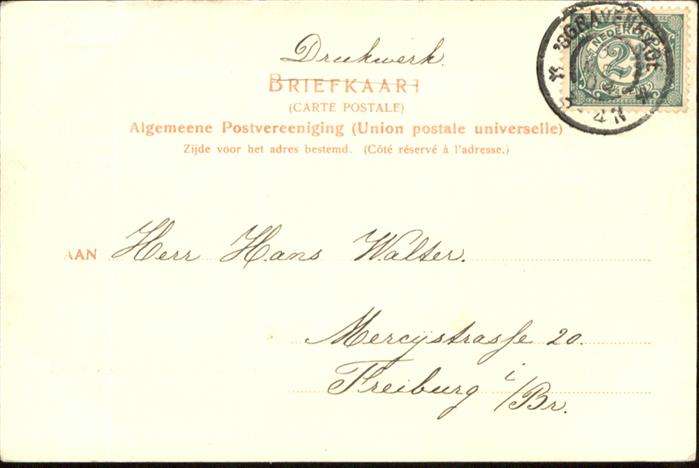 Drukwerk.
BRIEFKAART
(CARTE POSTALE)
Algemeene Postvereeniging (Union postale universelle)
Zijde voor het adres bestemd. (Côté réservé à l'adresse.)
AAN Herr Hans Walter.
Mercystrasse 20.
Freiburg i/Br.
'SGRAVENHAGE
NEDERLAND
2½